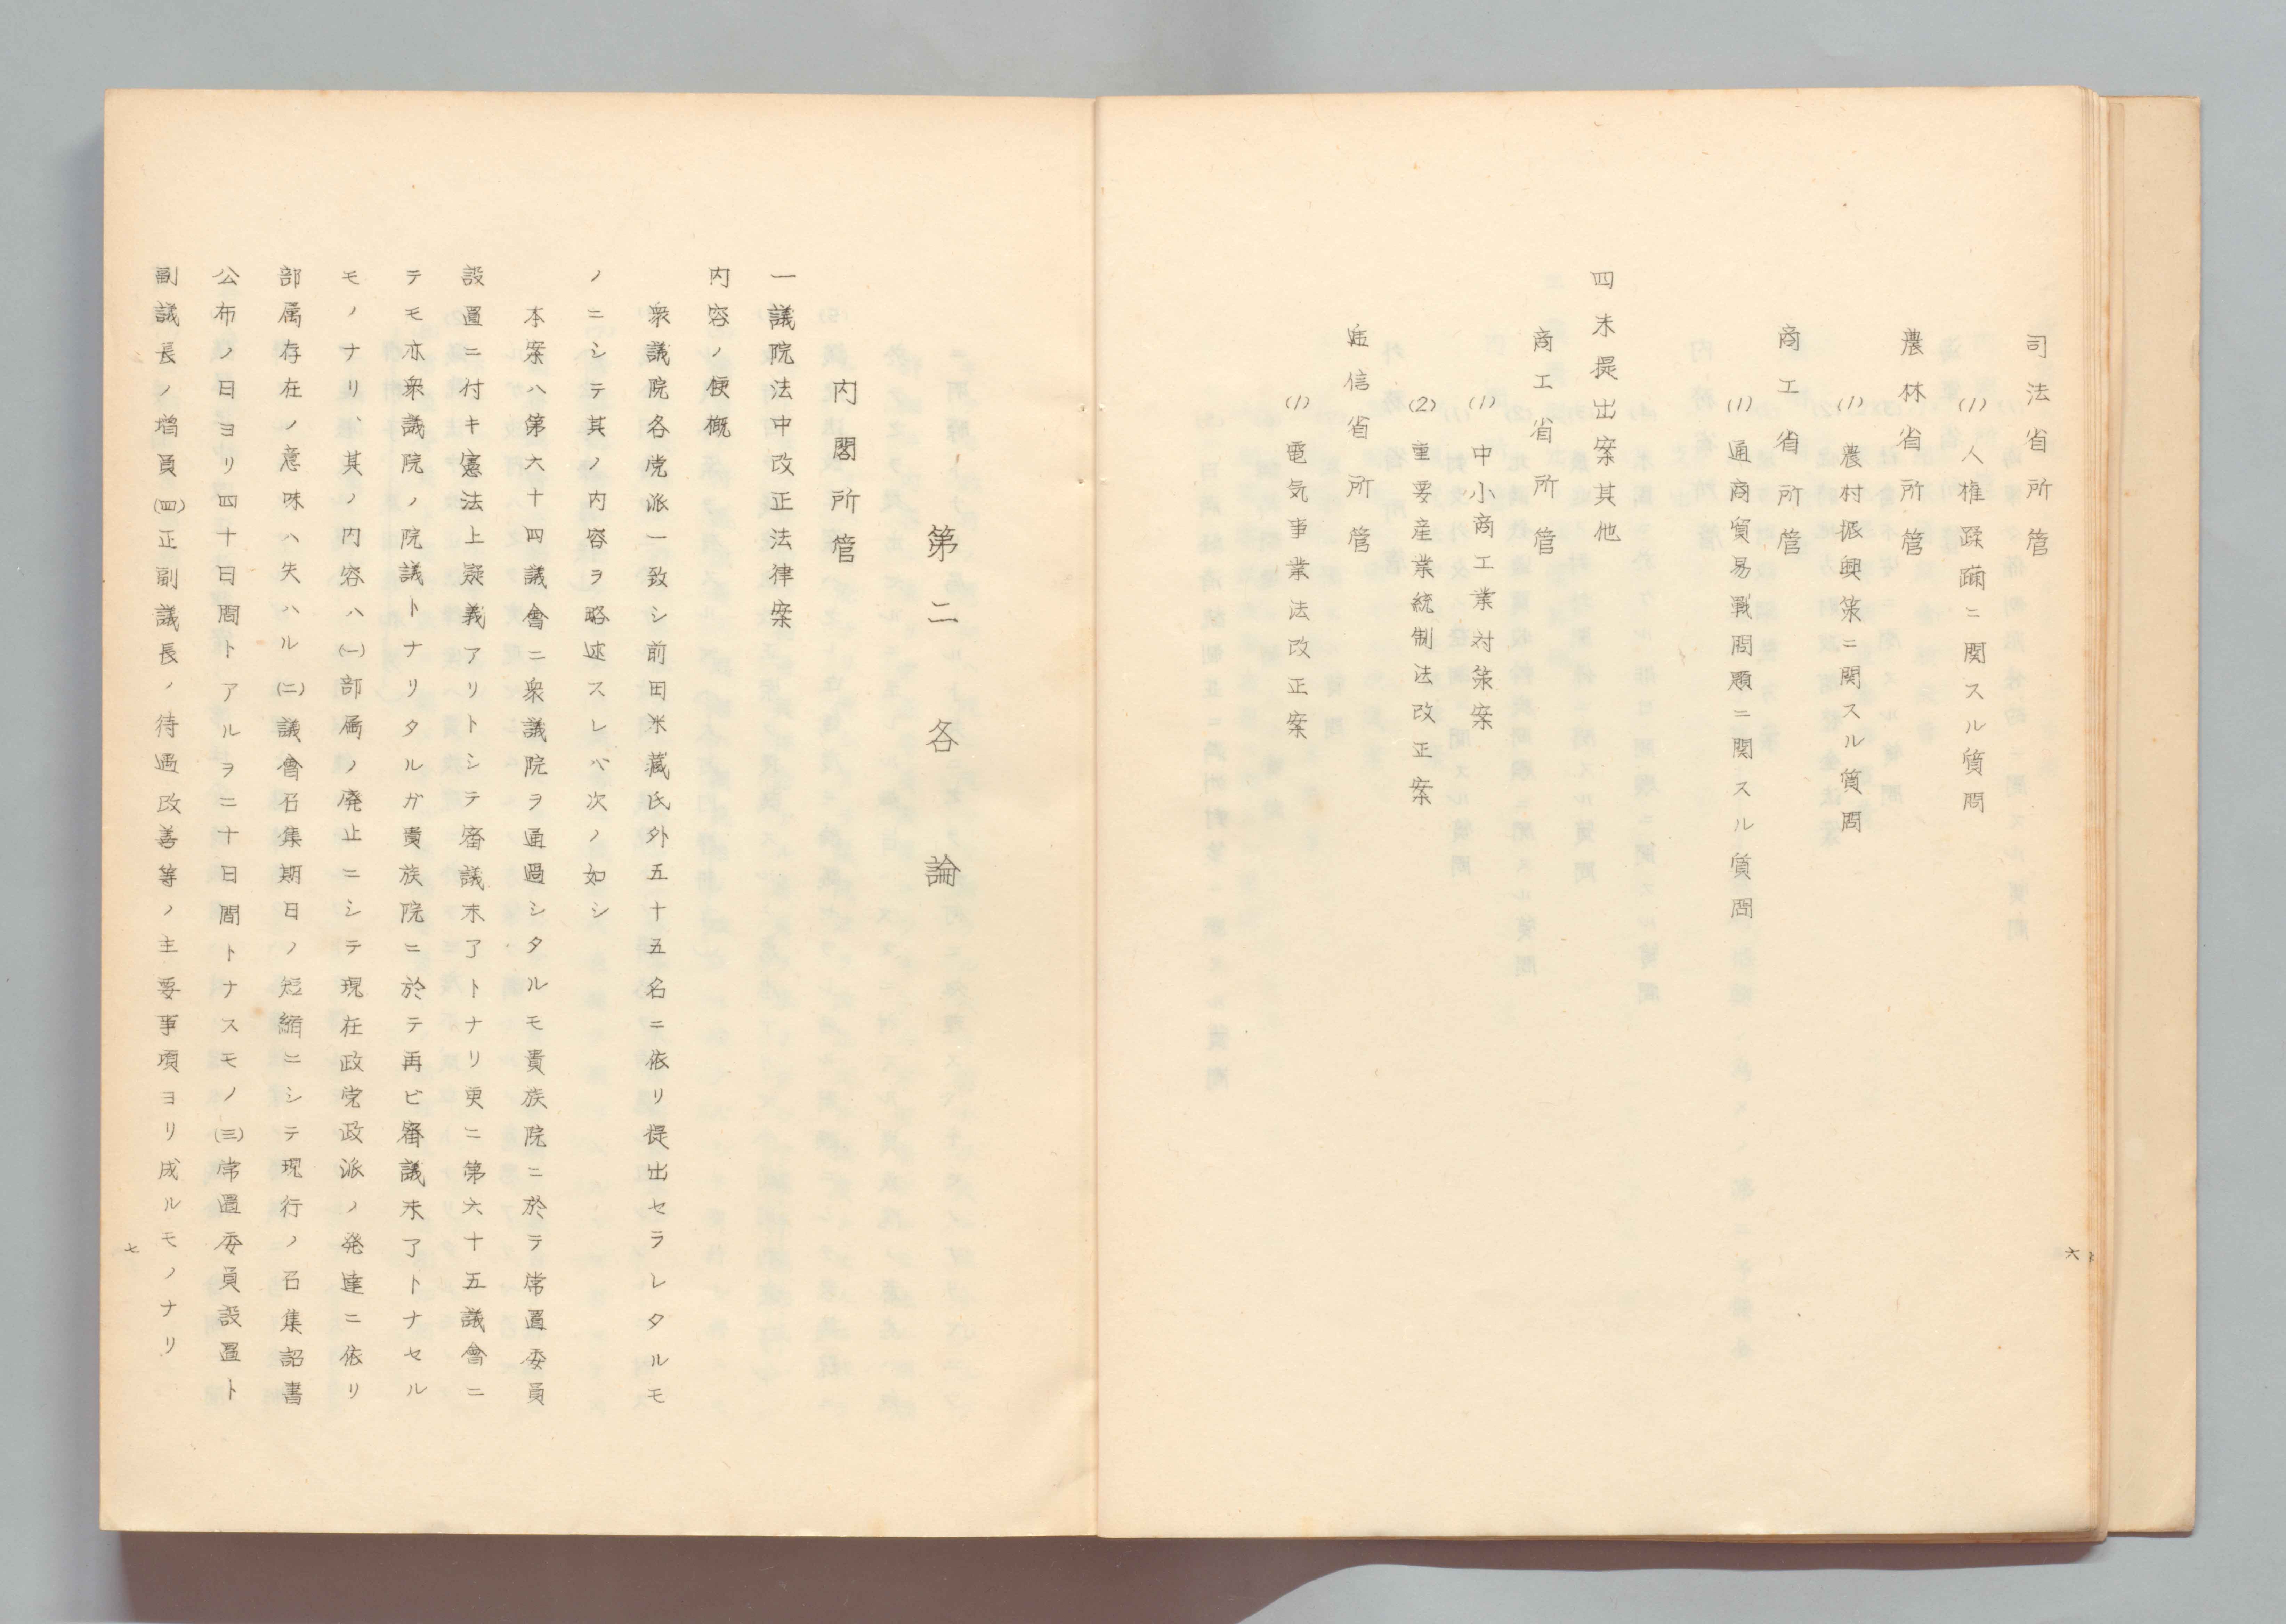 司法省所管
(1) 人権蹂躙ニ関スル質問
農林省所管
(1) 農村振興策ニ関スル質問
商工省所管
(1) 通商貿易戰問題ニ関スル質問
四 未提出案其他
商工省所管
(1) 中小商工業対策案
(2) 重要産業統制法改正案
逓信省所管
(1) 電気事業法改正案
六
第二 各論
内閣所管
一議院法中改正法律案
内容ノ便概
衆議院各党派一致シ前田米蔵氏外五十五名ニ依リ提出セラレタルモ
ノニシテ其ノ内容ヲ略述スレバ次ノ如シ
本案ハ第六十四議會ニ衆議院ヲ通過シタルモ貴族院ニ於テ常置委員
設置ニ付キ憲法上疑義アリトシテ審議未了トナリ更ニ第六十五議會ニ
テモ亦衆議院ノ院議トナリタルガ貴族院ニ於テ再ビ審議未了トナセル
モノナリ、其ノ内容ハ(一)部属ノ廃止ニシテ現在政党政派ノ発達ニ依リ
部属存在ノ意味ハ失ハル(二)議會召集期日ノ短縮ニシテ現行ノ召集詔書
公布ノ日ヨリ四十日間トアルヲ二十日間トナスモノ(三)常置委員設置ト
副議長ノ増員(四)正副議長ノ待遇改善等ノ主要事項ヨリ成ルモノナリ
七